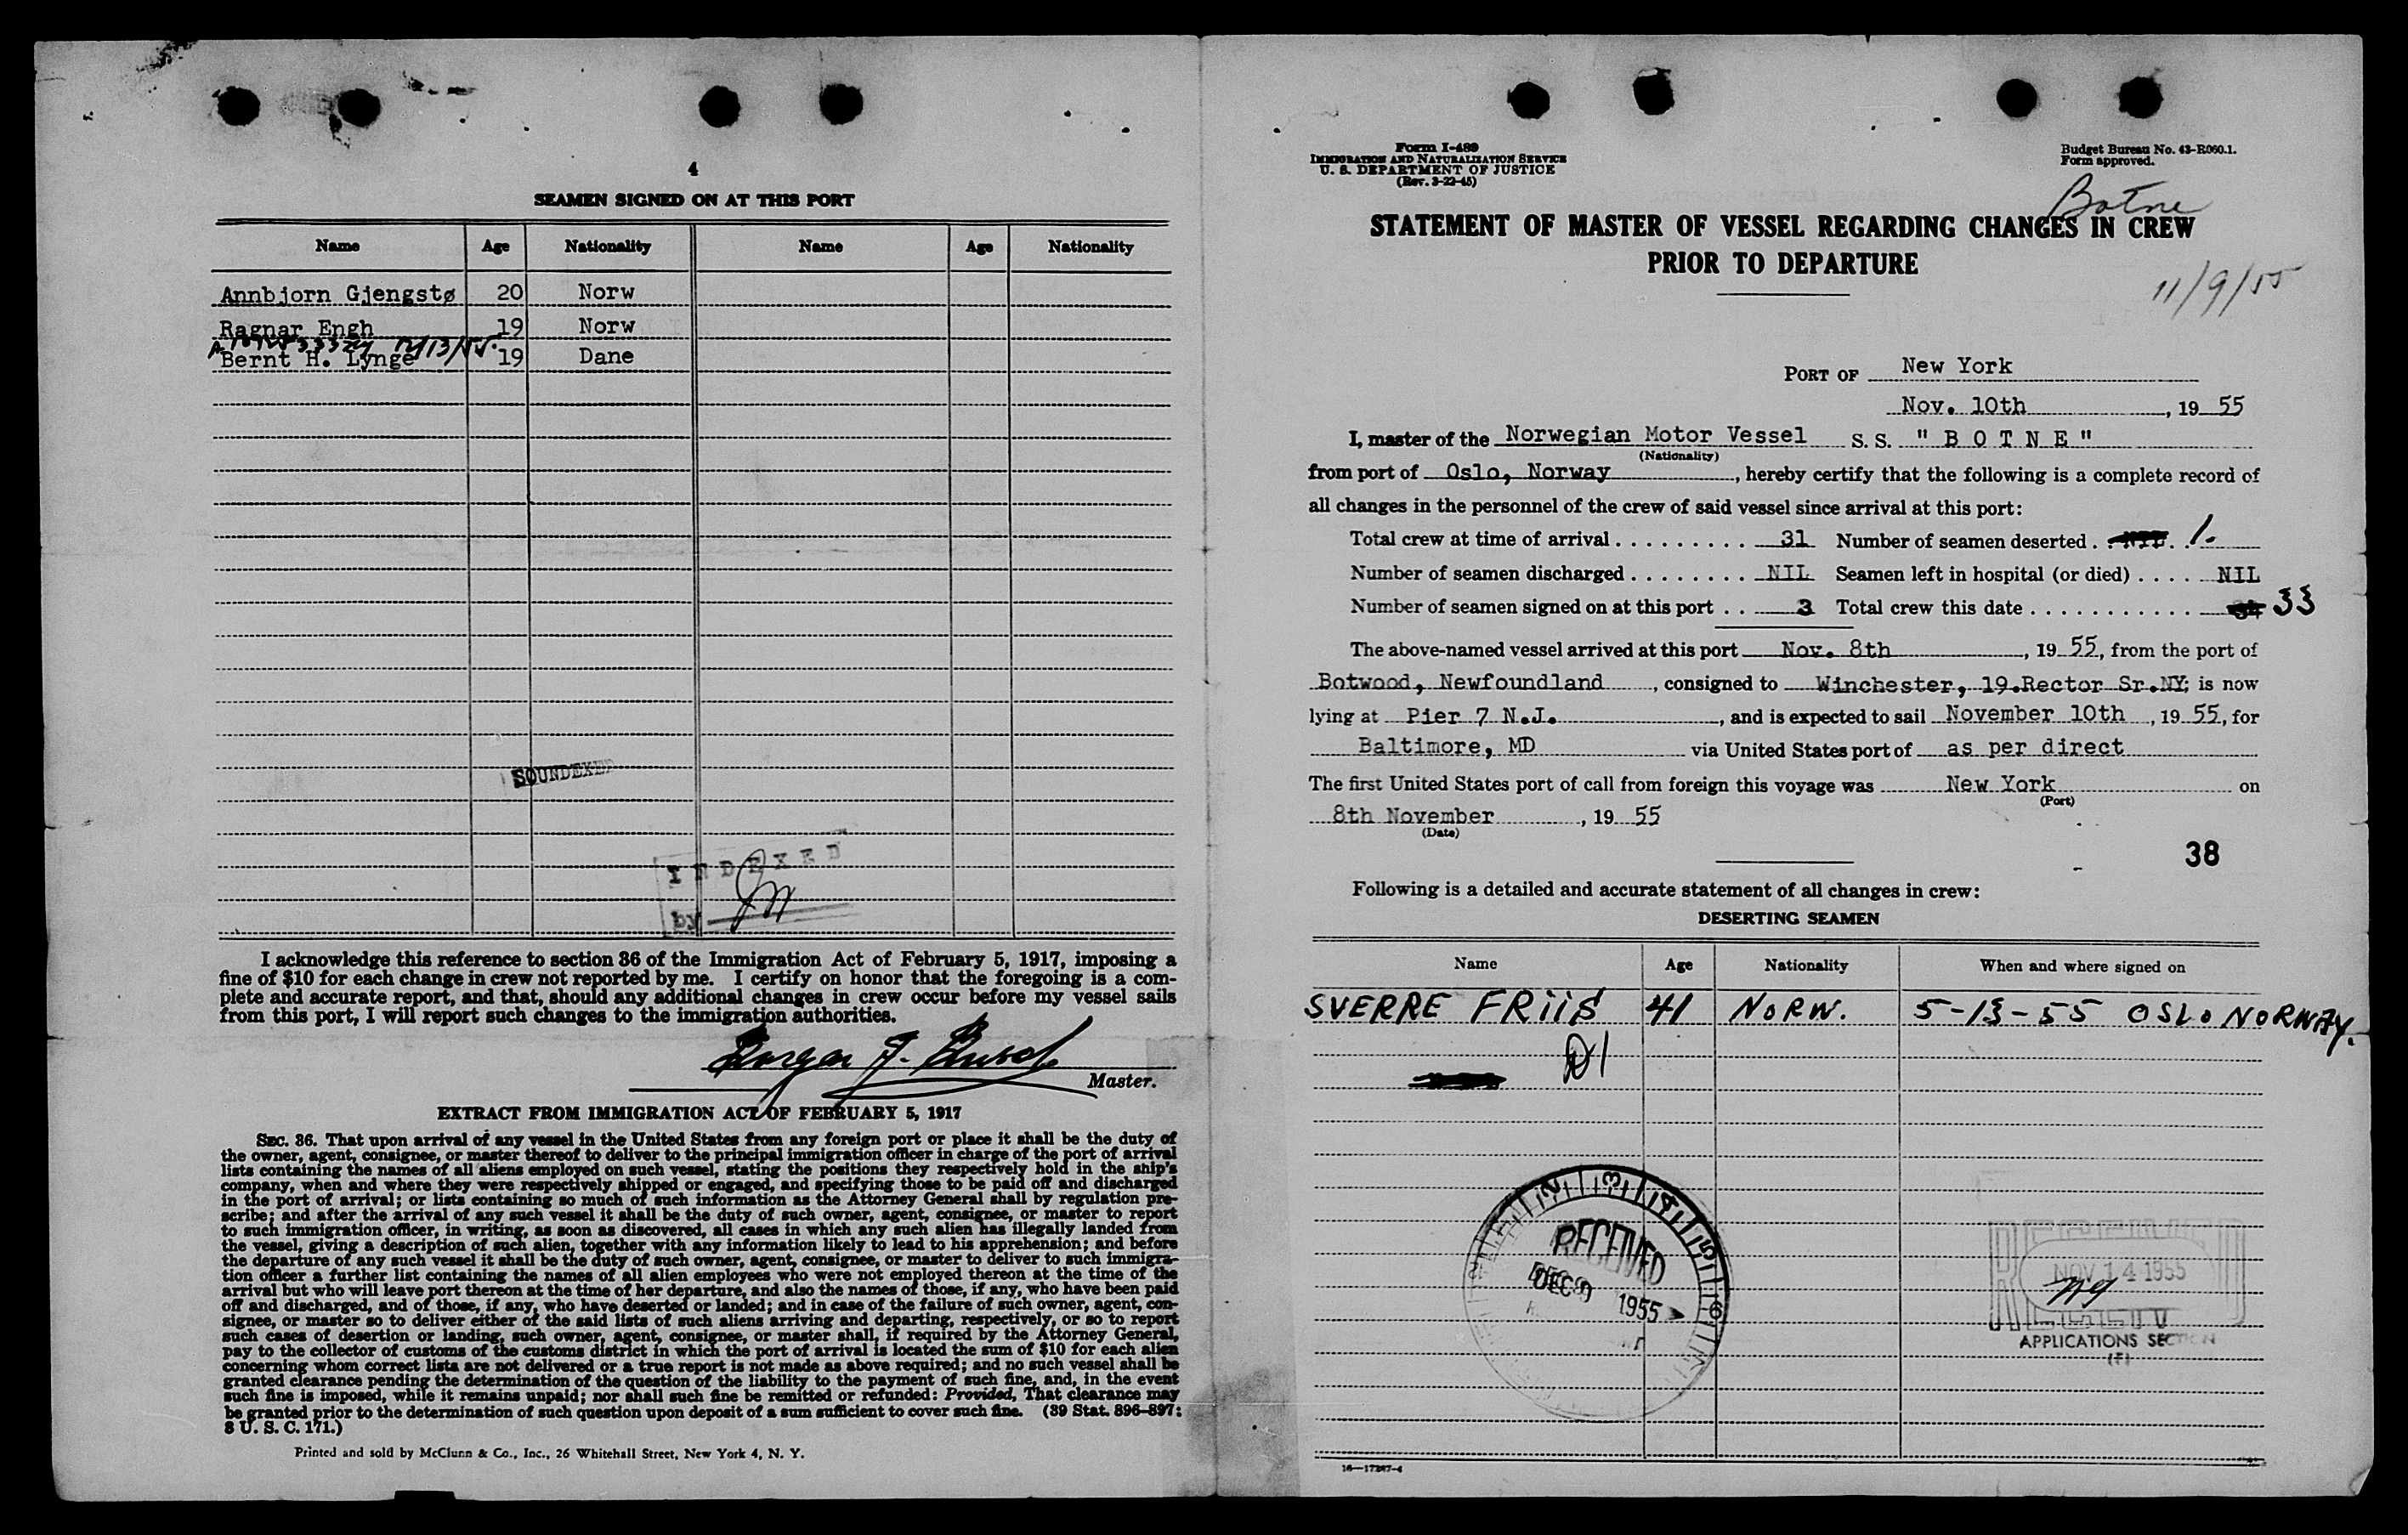 4
SEAMEN SIGNED ON AT THIS PORT
Name Age Nationality Name Age Nationality
Annbjorn Gjengstø 20 Norw
Ragnar Engh 19 Norw
12/13/55.
Bernt H. Lynge 19 Dane
SOUNDEXED
INDEXED
by
I acknowledge this reference to section 36 of the Immigration Act of February 5, 1917, imposing a
fine of $10 for each change in crew not reported by me. I certify on honor that the foregoing is a com-
plete and accurate report, and that, should any additional changes in crew occur before my vessel sails
from this port, I will report such changes to the immigration authorities.
Master.
EXTRACT FROM IMMIGRATION ACT OF FEBRUARY 5, 1917
SEC. 36. That upon arrival of any vessel in the United States from any foreign port or place it shall be the duty of
the owner, agent, consignee, or master thereof to deliver to the principal immigration officer in charge of the port of arrival
lists containing the names of all aliens employed on such vessel, stating the positions they respectively hold in the ship's
company, when and where they were respectively shipped or engaged, and specifying those to be paid off and discharged
in the port of arrival; or lists containing so much of such information as the Attorney General shall by regulation pre-
scribe; and after the arrival of any such vessel it shall be the duty of such owner, agent, consignee, or master to report
to such immigration officer, in writing, as soon as discovered, all cases in which any such alien has illegally landed from
the vessel, giving a description of such alien, together with any information likely to lead to his apprehension; and before
the departure of any such vessel it shall be the duty of such owner, agent, consignee, or master to deliver to such immigra-
tion officer a further list containing the names of all alien employees who were not employed thereon at the time of the
arrival but who will leave port thereon at the time of her departure, and also the names of those, if any, who have been paid
off and discharged, and of those, if any, who have deserted or landed; and in case of the failure of such owner, agent, con-
signee, or master so to deliver either of the said lists of such aliens arriving and departing, respectively, or so to report
such cases of desertion or landing, such owner, agent, consignee, or master shall, if required by the Attorney General,
pay to the collector of customs of the customs district in which the port of arrival is located the sum of $10 for each alien
concerning whom correct lists are not delivered or a true report is not made as above required; and no such vessel shall be
granted clearance pending the determination of the question of the liability to the payment of such fine, and, in the event
such fine is imposed, while it remains unpaid; nor shall such fine be remitted or refunded: Provided, That clearance may
be granted prior to the determination of such question upon deposit of a sum sufficient to cover such fine. (39 Stat. 896-897;
8 U. S. C. 171.)
Printed and sold by McClunn & Co., Inc., 26 Whitehall Street, New York 4, N. Y.
Form I-489
IMMIGRATION AND NATURALIZATION SERVICE
U. S. DEPARTMENT OF JUSTICE
(Rev. 3-22-45)
Budget Bureau No. 43-R060.1.
Form approved.
Botne
STATEMENT OF MASTER OF VESSEL REGARDING CHANGES IN CREW
PRIOR TO DEPARTURE
11/9/55
PORT OF New York
Nov. 10th, 19 55
I, master of the Norwegian Motor Vessel S. S. "BOTNE"
(Nationality)
from port of Oslo, Norway, hereby certify that the following is a complete record of
all changes in the personnel of the crew of said vessel since arrival at this port:
Total crew at time of arrival . . . . . . . . . . 31 Number of seamen deserted . . NIL . 1.
Number of seamen discharged . . . . . . . . NIL Seamen left in hospital (or died) . . . . . NIL
Number of seamen signed on at this port . . 3 Total crew this date . . . . . . . . . . . . 34 33
The above-named vessel arrived at this port Nov. 8th, 19 55, from the port of
Botwood, Newfoundland, consigned to Winchester, 19.Rector Sr.NY; is now
lying at Pier 7 N.J., and is expected to sail November 10th, 19 55, for
Baltimore, MD via United States port of as per direct
The first United States port of call from foreign this voyage was New York on
(Port)
8th November, 19 55
(Date)
38
Following is a detailed and accurate statement of all changes in crew:
DESERTING SEAMEN
Name Age Nationality When and where signed on
SVERRE FRIIS 41 NORW. 5-13-55 OSLO NORWAY.
RECEIVED
DEC 9 1955
NOV 14 1955
APPLICATIONS SECTION
16—17267-4